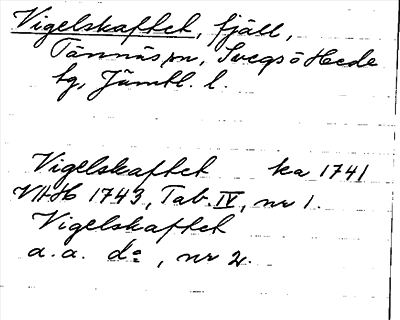 Vigelskaftet, fjäll,
Tännäs sn, Svegs o Hede
tg, Jämtl. l.
Vigelskaftet ka 1741
VHH 1743, Tab. IV, nr 1.
Vigelskaftet
a. a. do, nr 2.